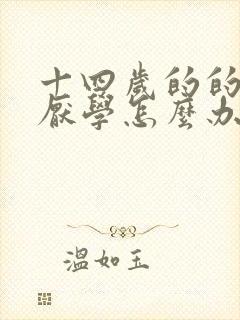 十四歲的的
厭學怎麼办
溫如玉